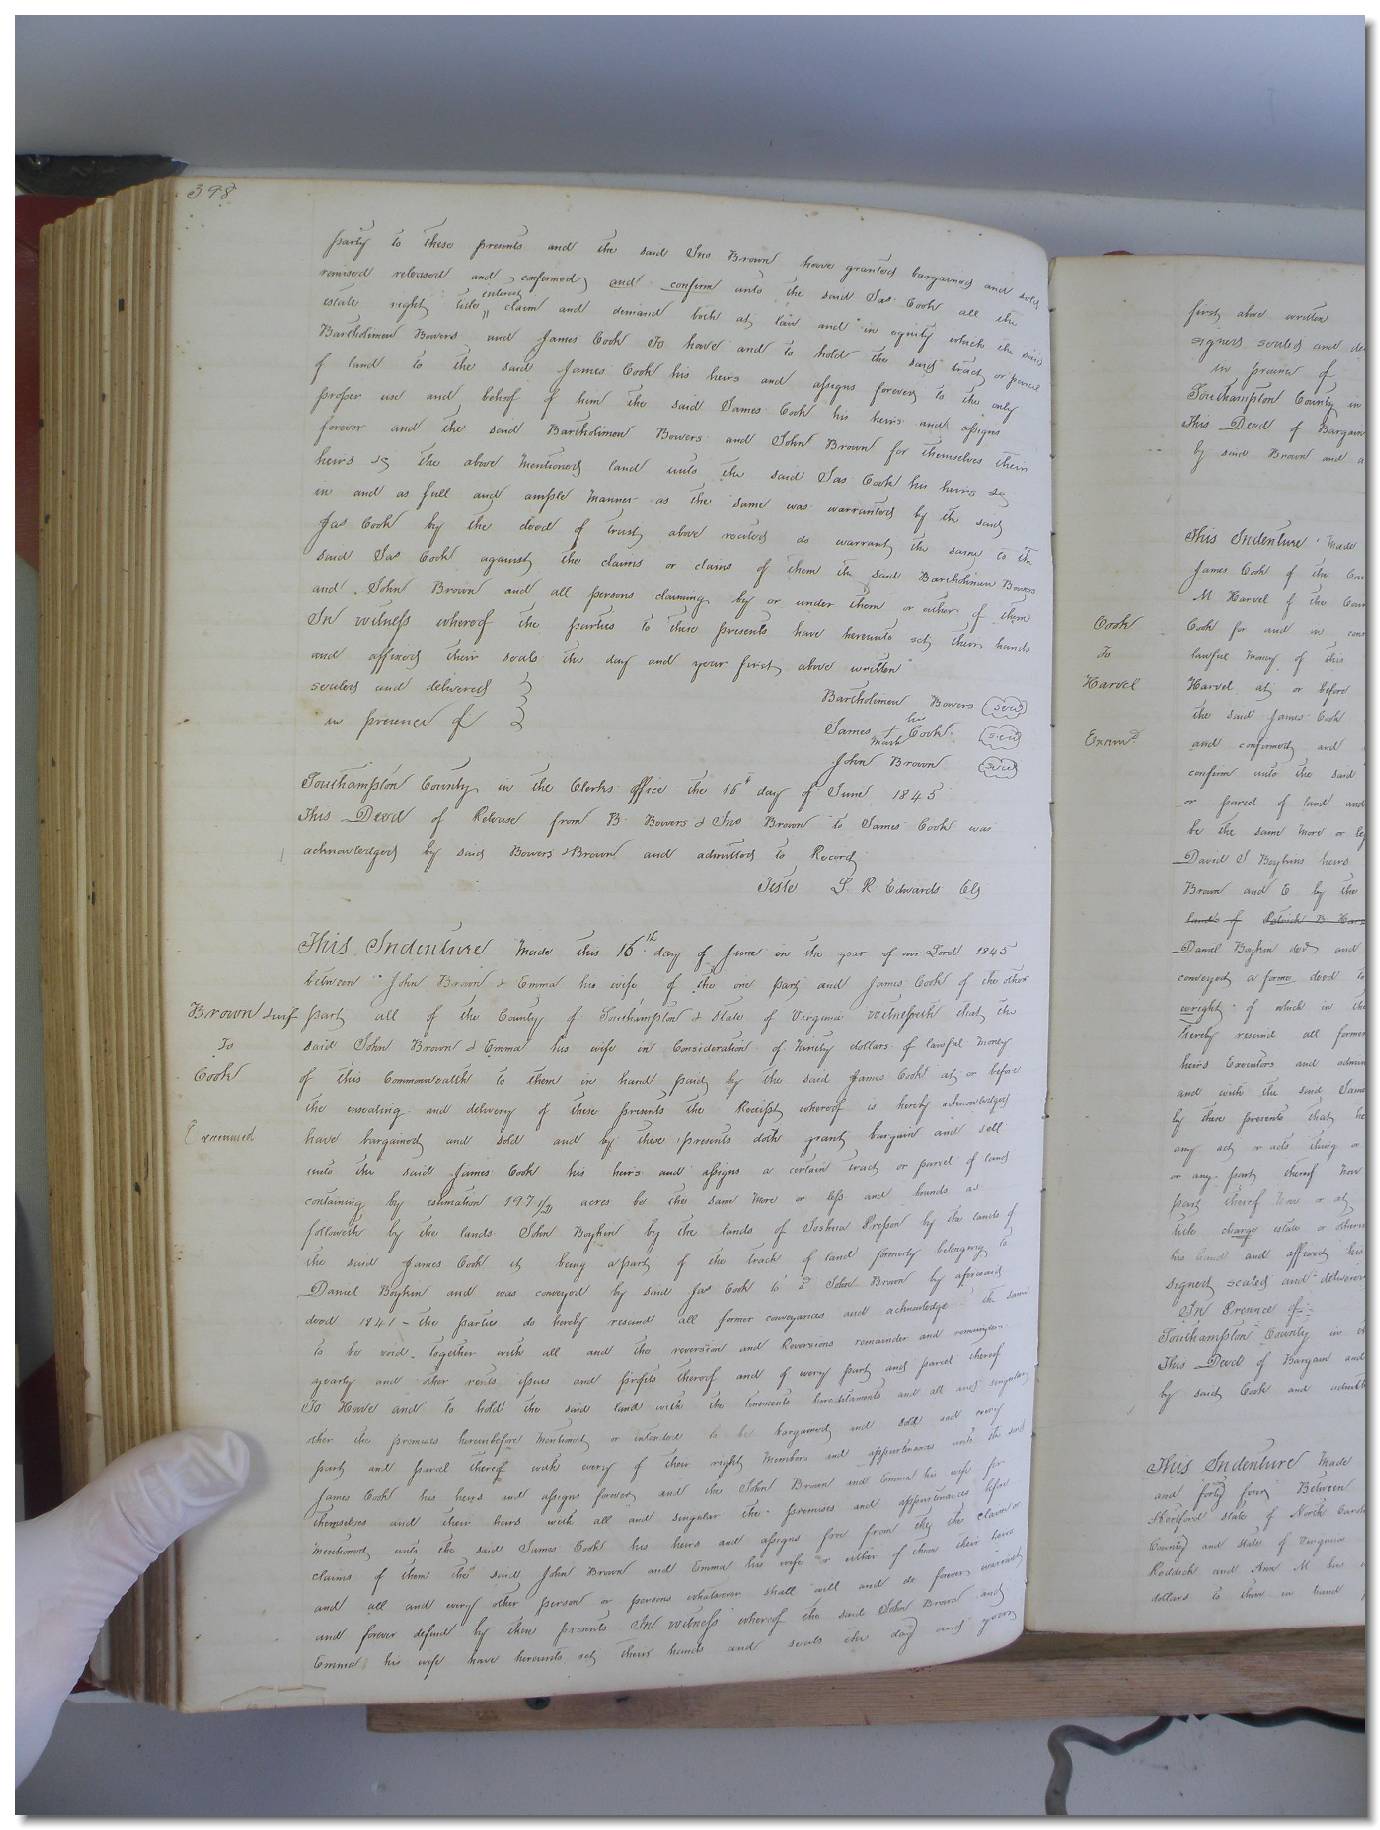 398
party to these presents and the said Jno Brown have granted bargained and sold
remised released and confirmed and confirm unto the said Jas Cook all the
estate right title interest claim and demand both at law and in equity which the said
Bartholimew Bowers and James Cook To have and to hold the said tract or parcel
of land to the said James Cook his heirs and assigns forever to the only
proper use and behoof of him the said James Cook his heirs and assigns
forever and the said Bartholimew Bowers and John Brown for themselves their
heirs &c the above mentioned land unto the said Jas Cook his heirs &c
in and as full and ample manner as the same was warranted by the said
Jas Cook by the deed of trust above recited do warrant the same to the
said Jas Cook against the claims or claims of them the said Bartholimew Bowers
and John Brown and all persons claiming by or under them or either of them
In witness whereof the parties to these presents have hereunto set their hands
and affixed their seals the day and year first above written
sealed and delivered
in presence of
Bartholimew Bowers seal
James his + mark Cook seal
John Brown seal
Southampton County in the Clerks office the 16th day of June 1845
This Deed of Release from B Bowers & Jno Brown to James Cook was
acknowledged by said Bowers & Brown and admitted to Record
Teste L R Edwards Clk
This Indenture Made this 16th day of June in the year of our Lord 1845
between John Brown & Emma his wife of the one part and James Cook of the other
Brown & wife
To
Cook
Examined
part all of the County of Southampton & State of Virginia witnesseth that the
said John Brown & Emma his wife in Consideration of Ninety dollars of lawful money
of this Commonwealth to them in hand paid by the said James Cook at or before
the ensealing and delivery of these presents the Receipt whereof is hereby acknowledged
have bargained and sold and by these presents doth grant bargain and sell
unto the said James Cook his heirs and assigns a certain tract or parcel of land
containing by estimation 197 1/2 acres be the same more or less and bounds as
followeth by the lands John Boykin by the lands of Joshua Presson by the lands of
the said James Cook it being a part of the track of land formerly belonging to
Daniel Boykin and was conveyed by said Jas Cook to sd John Brown by aforesaid
deed 1841 - the parties do hereby resund all former conveyances and acknowledge the same
to be void together with all and the reversion and Reversions remainder and remainders
yearly and other rents issues and profits thereof and of every part and parcel thereof
To Have and to hold the said land with the tenements hereditaments and all and singular
other the premises hereinbefore mentioned or intended to be bargained and sold and every
part and parcel thereof with every of their rights Members and appurtenances unto the said
James Cook his heirs and assigns forever and the John Brown and Emma his wife for
themselves and their heirs with all and singular the premises and appurtenances before
mentioned unto the said James Cook his heirs and assigns free from the claim or
claims of them the said John Brown and Emma his wife or either of them their heirs
and all and every other person or persons whatsoever shall will and do forever warrant
and forever defend by these presents In witness whereof the said John Brown and
Emma his wife have hereunto set their hands and seals the day and year
first above written
signed sealed and de
in presence of
Southampton County in
This Deed of Bargain
by said Brown and a
This Indenture Made
James Cook of the Cou
M Harvel of the Coun
Cook
To
Harvel
Examd
Cook for and in con
lawful money of this
Harvel at or before
the said James Cook
and confirmed and
confirm unto the said
or parcel of land and
be the same more or le
David J Boykins heirs
Brown and E by the
lands of
Daniel Boykin decd and
conveyed a former deed to
wright of which in the
hereby resund all former
heirs Executors and admin
and with the said Jame
by these presents that he
any act or acts thing or
or any part thereof now
part thereof now or at
title charge estate or otherw
his hand and affixed his
signed sealed and deliver
In Presence of
Southampton County in
This Deed of Bargain and
by said Cook and admitt
This Indenture Made
and forty four Between
Hertford state of North Caroli
County and State of Virginia
Reddick and Ann M his
dollars to them in hand